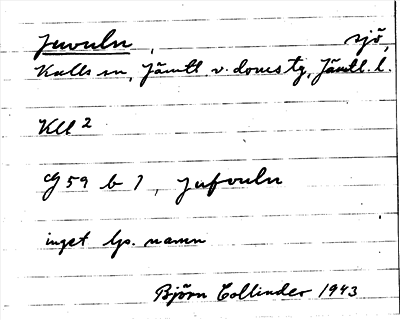 Juvuln, sjö,
Kalls sn, Jämtl v. doms tg, Jämtl. l.
Kll 2
G 59 b 7, Jufvuln
inget lp. namn
Björn Collinder 1943